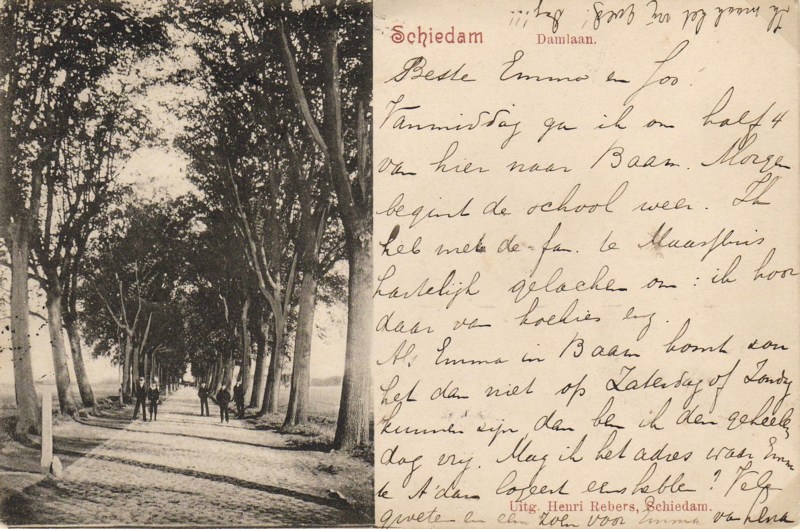 Ik maak het vrij goed! Dag!!!
Schiedam Damlaan.
Beste Emma en Joo.
Vanmiddag ga ik om half 4
van hier naar Baarn. Morgen
begint de school weer. Ik
heb met de fam. te Maassluis
hartelijk gelachen om : ik hoor
daar van hoekies enz.
Als Emma in Baarn komt, zou
het dan niet op Zaterdag of Zondag
kunnen zijn, dan ben ik den geheelen
dag vrij. Mag ik het adres waar Emma
te A'dam logeert eens hebben? Vele
Uitg. Henri Rebers, Schiedam.
groeten en een zoen voor Emma van